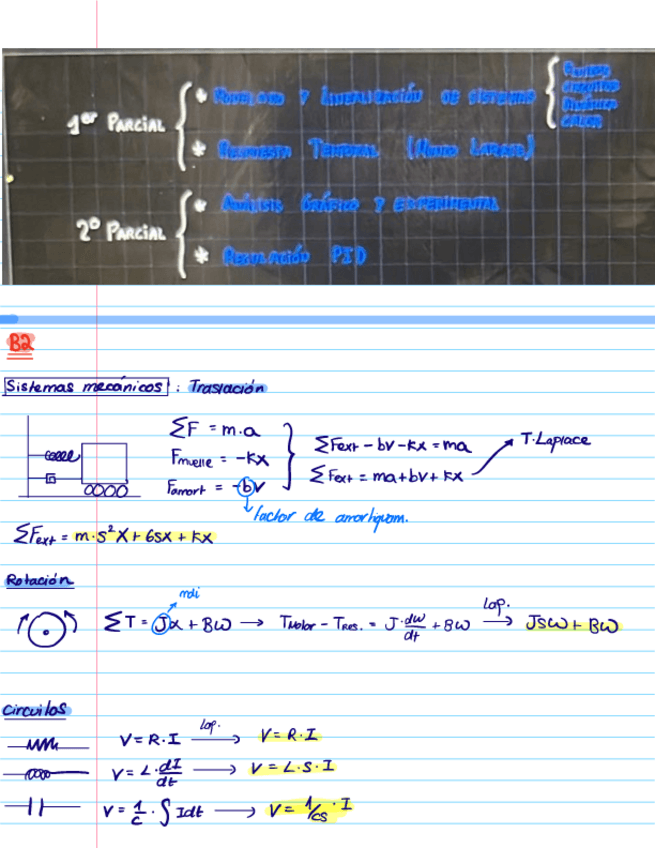 1er PARCIAL
* MODELADO Y LINEALIZACIÓN DE SISTEMAS
* RESPUESTA TEMPORAL (MODO LAPLACE)
2º PARCIAL
* ANÁLISIS GRÁFICO Y EXPERIMENTAL
* REGULACIÓN PID
B2
Sistemas mecánicos : Traslación
ΣF = m.a
Fmuelle = -Kx
Famort = -bv
ΣFext - bv - Kx = ma
ΣFext = ma + bv + Kx
T. Laplace
factor de amortiguam.
ΣFext = m·s²X + bsx + Kx
Rotación
mdi
ΣT = Jα + Bω → TMotor - TRes. = J·dω/dt + Bω Lap. → JSω + Bω
Circuitos
V = R·I Lap. → V = R·I
V = L·dI/dt → V = L·S·I
V = 1/C · ∫ Idt → V = 1/CS · I